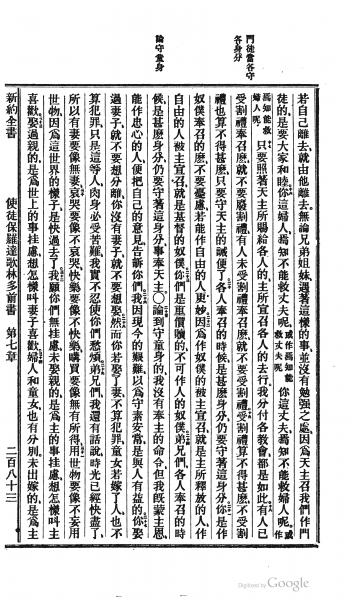 門徒當各守
各身分
論守童身
若自己離去、就由他離去、無論兄弟姐妹、遇著這樣的事、並沒有勉強之處、因為天主召我們作門
徒的、是要大家和睦、你這婦人、焉知不能救丈夫呢、或作焉知能救丈夫呢 你這丈夫、焉知不能救婦人呢、或作
焉知能救婦人呢 只要照著天主所賜給各人的、主所宣召各人的去行、我分付各教會都是如此、有人已
受割禮奉召麽、就不要廢割禮、有人未受割禮奉召麽、就不要受割禮、受割禮算不得甚麽、不受割
禮也算不得甚麽、只要守天主的誡便了、各人奉召的時候、是甚麽身分、仍要守著這身分、你是作
奴僕奉召的麽、不要憂慮、若能作自由的人更妙、因為作奴僕的被主宣召、就是主所釋放的人、作
自由的人被主宣召、就是基督的奴僕、你們是重價贖的、不可作人的奴僕、弟兄們、各人奉召的時
候、是甚麽身分、仍要守著這身分、事奉天主、○論到守童身的、我沒有奉主的命令、但我旣蒙主恩、
能作忠心的人、便把自己的意見告訴你們、我因現今的艱難、以為守素安常、是與人有益的、你娶
過妻子、就不要想分離、你沒有妻子、就不要想娶、然而你若娶了妻、不算犯罪、童女若嫁了人、也不
算犯罪、只是這等人、肉身必受苦難、我實不忍使你們愁煩、弟兄們、我還有話說、時光已經快盡了、
所以有妻要像無妻、哀哭要像不哀哭、快樂要像不快樂、購買要像無有所得、用世物要像不妄用
世物、因為這世界的樣子是快過去了、我願你們無掛慮、未娶親的、是為主的事掛慮、想怎樣叫主
喜歡、娶過親的、是為世上的事掛慮、想怎樣叫妻子喜歡、婦人和童女、也有分別、未出嫁的、是為主
新約全書 使徒保羅達歌林多前書 第七章 二百八十三
Digitized by Google